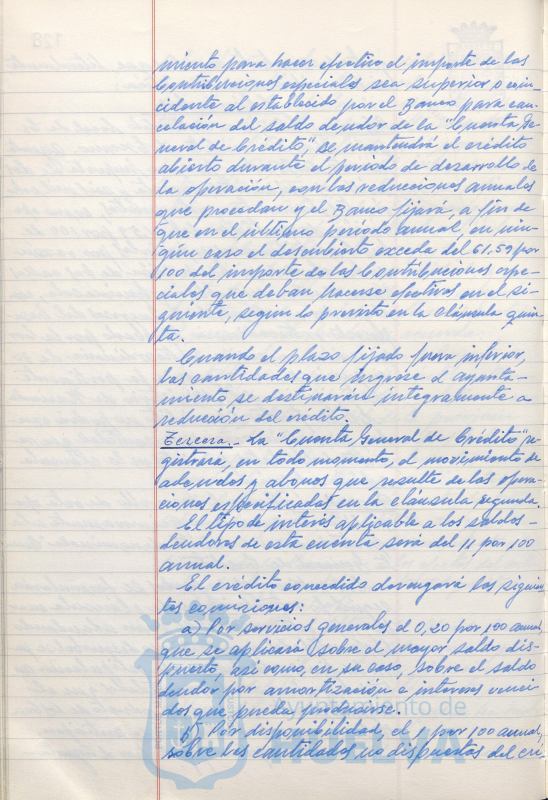 miento para hacer efectivo el importe de las
Contribuciones especiales sea superior o coin-
cidente al establecido por el Banco para can-
celación del saldo deudor de la "Cuenta Ge-
neral de Crédito", se mantendrá el crédito
abierto durante el periodo de desarrollo de
la operación, con las reducciones anuales
que procedan y el Banco fijará, a fin de
que en el último periodo anual, en nin-
gún caso el descubierto exceda del 61.59 por
100 del importe de las Contribuciones espe-
ciales que deban hacerse efectivas en el si-
guiente, según lo previsto en la cláusula quin-
ta.
Cuando el plazo fijado fuera inferior,
las cantidades que ingrese el ayunta-
miento se destinarán integramente a
reducción del crédito.
Tercera.- La "Cuenta General de Crédito" re-
gistrará, en todo momento, el movimiento de
adeudos y abonos que resulte de las opera-
ciones especificadas en la cláusula segunda.
El tipo de interés aplicable a los saldos -
deudores de esta cuenta será del 11 por 100
anual.
El crédito concedido devengará las siguien-
tes comisiones:
a) Por servicios generales el 0,20 por 100 anual,
que se aplicará sobre el mayor saldo dis-
puesto así como, en su caso, sobre el saldo
deudor por amortización e intereses venci-
dos que pueda producirse.
b) Por disponibilidad, el 1 por 100 anual,
sobre las cantidades no dispuestas del cré-
Ayuntamiento de